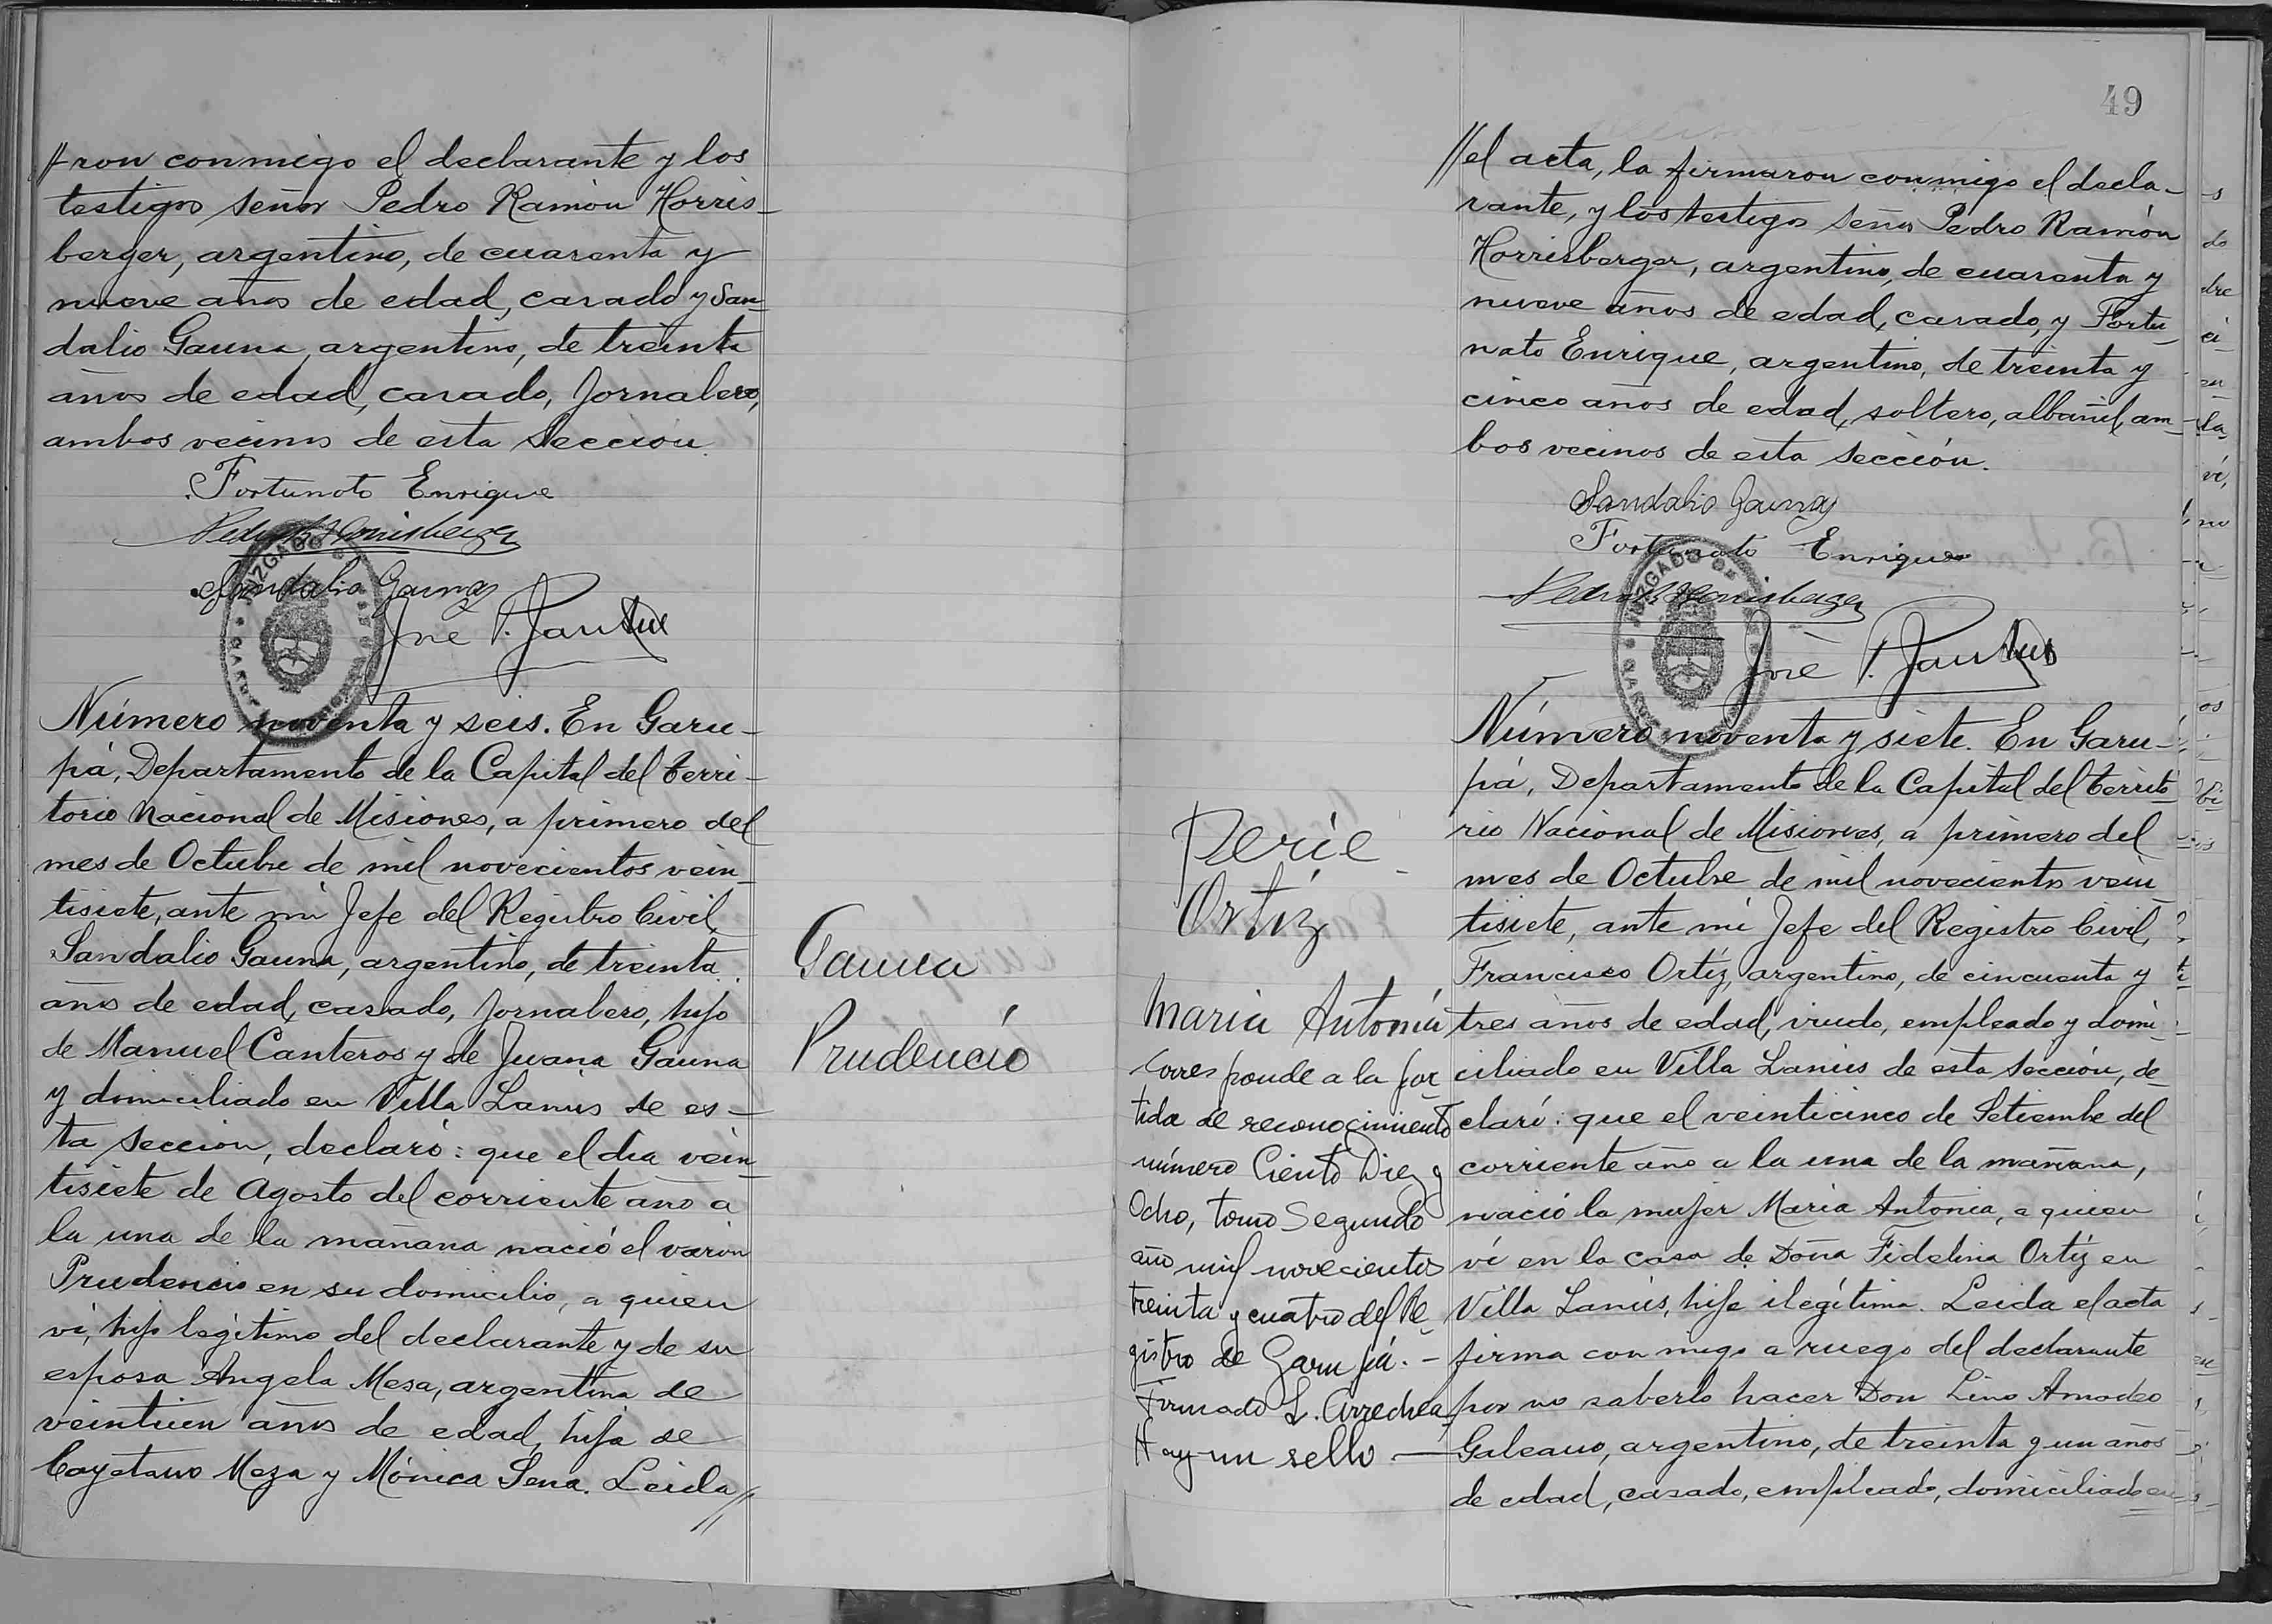 //ron conmigo el declarante y los
testigos señor Pedro Ramón Horris-
berger, argentino, de cuarenta y
nueve años de edad, casado y San-
dalio Gauna, argentino, de treinta
años de edad, casado, Jornalero,
ambos vecinos de esta Sección.
Fortunato Enrique
Pedro R Horrisberger
Sandalio Gauna
José P.
JUZGADO DE
Número noventa y seis. En Garu-
pá, Departamento de la Capital del terri-
torio Nacional de Misiones, a primero del
mes de Octubre de mil novecientos vein-
tisiete, ante mi Jefe del Registro Civil,
Sandalio Gauna, argentino, de treinta
años de edad, casado, Jornalero, hijo
de Manuel Canteros y de Juana Gauna
y domiciliado en Villa Lanús de es-
ta sección, declaró: que el día vein-
tisiete de Agosto del corriente año a
la una de la mañana nació el varón
Prudencio en su domicilio, a quien
ví, hijo legítimo del declarante y de su
esposa Angela Mesa, argentina de
veintiun años de edad, hija de
Cayetano Meza y Mónica Sena. Leida//
Gauna
Prudencio
49
//el acta, la firmaron conmigo el decla-
rante, y los testigos señor Pedro Ramón
Horrisberger, argentino, de cuarenta y
nueve años de edad, casado, y Fortu-
nato Enrique, argentino, de treinta y
cinco años de edad, soltero, albañil, am-
bos vecinos de esta sección.
Sandalio Gauna
Fortunato Enrique
Pedro R Horrisberger
José P.
JUZGADO DE
Número noventa y siete. En Garu-
pá, Departamento de la Capital del territo-
rio Nacional de Misiones, a primero del
mes de Octubre de mil novecientos vein
tisiete, ante mi Jefe del Registro Civil,
Francisco Ortíz, argentino, de cincuenta y
tres años de edad, viudo, empleado y domi-
ciliado en Villa Lanús de esta Sección, de-
claró: que el veinticinco de Setiembre del
corriente año a la una de la mañana,
nació la mujer María Antonia, a quien
ví en la casa de Doña Fidelina Ortíz en
Villa Lanús, hija ilegítima. Leida el acta
firma con migo a ruego del declarante
por no saberlo hacer Don Lino Amadeo
Galeano, argentino, de treinta y un años
de edad, casado, empleado, domiciliado en
Ortíz
Maria Antonia
Corresponde a la par
tida de reconocimiento
número Ciento Diez y
Ocho, tomo Segundo
año mil novecientos
treinta y cuatro del Re-
gistro de Garupá.-
Firmado L. Arrechea
Hay un sello —